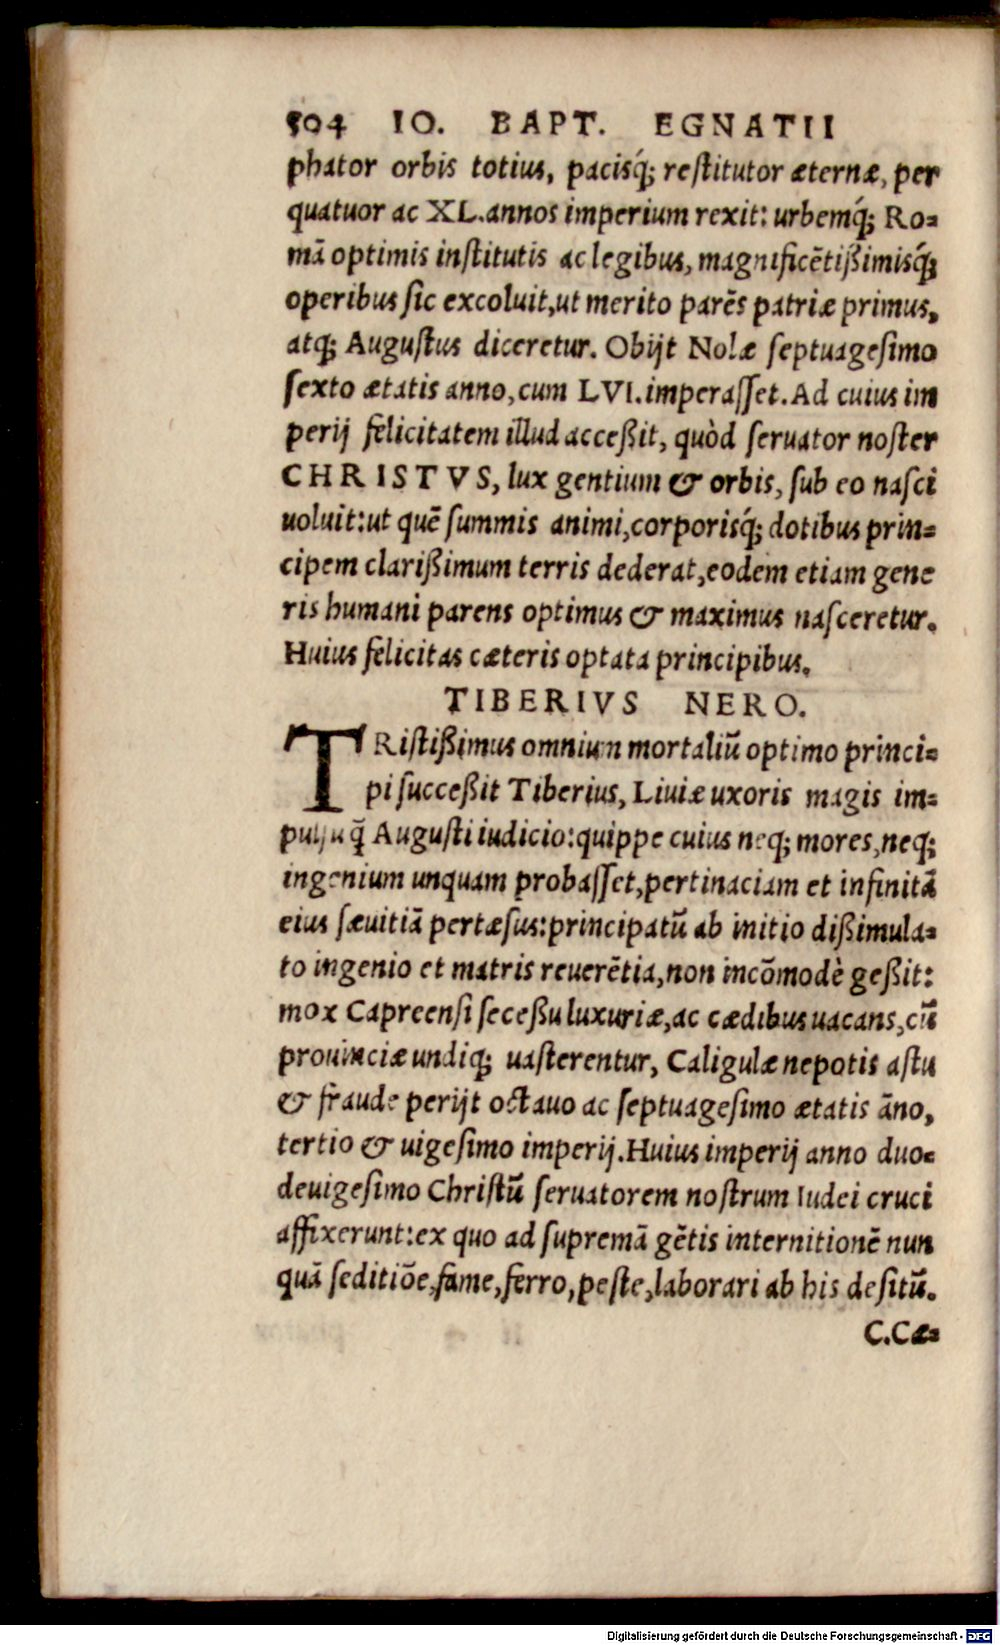 504 IO. BAPT. EGNATII
phator orbis totius, pacisq́; reſtitutor æternæ, per
quatuor ac XL.annos imperium rexit: urbemq́; Ro=
mã optimis inſtitutis ac legibus, magnificẽtißimisq́;
operibus ſic excoluit,ut merito parẽs patriæ primus,
atq; Auguſtus diceretur. Obijt Nolæ ſeptuageſimo
ſexto ætatis anno, cum LVI.imperaſſet.Ad cuius im
perij felicitatem illud acceßit, quòd ſeruator noſter
CHRISTVS, lux gentium & orbis, ſub eo naſci
uoluit:ut quẽ ſummis animi,corporisq́; dotibus prin=
cipem clarißimum terris dederat,eodem etiam gene
ris humani parens optimus & maximus naſceretur.
Huius felicitas cæteris optata principibus.
TIBERIVS NERO.
TRiſtißimus omnium mortaliũ optimo princi=
pi ſucceßit Tiberius, Liuiæ uxoris magis im=
pulſu q̃ Auguſti iudicio:quippe cuius neq; mores,neq;
ingenium unquam probaſſet,pertinaciam et infinitã
eius ſæuitiã pertæſus:principatũ ab initio dißimula=
to ingenio et matris reuerẽtia,non incõmodè geßit:
mox Capreenſi ſeceßu luxuriæ,ac cædibus uacans,cũ
prouinciæ undiq; uaſterentur, Caligulæ nepotis aſtu
& fraude perijt octauo ac ſeptuageſimo ætatis ãno,
tertio & uigeſimo imperij.Huius imperij anno duo=
deuigeſimo Chriſtũ ſeruatorem noſtrum Iudei cruci
affixerunt:ex quo ad ſupremã gẽtis internitionẽ nun
quã ſeditiõe,fame,ferro,peſte,laborari ab his deſitũ.
C.Cæ=
Digitalisierung gefördert durch die Deutsche Forschungsgemeinschaft - DFG